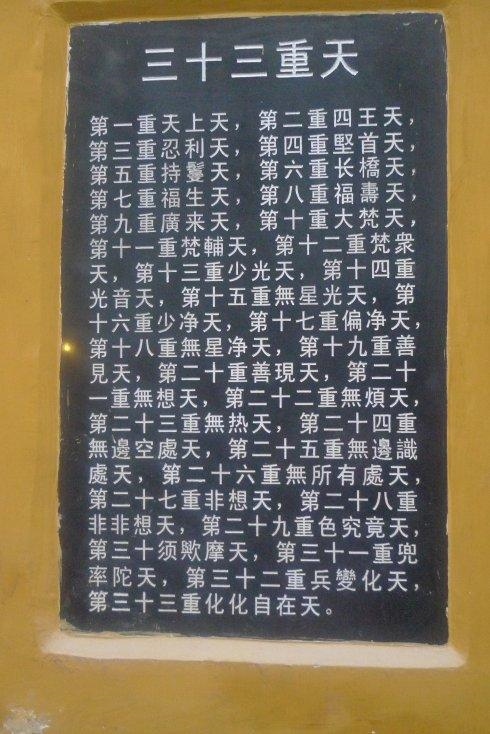 三十三重天
第一重天上天，第二重四王天，
第三重忍利天，第四重堅首天，
第五重持鬘天，第六重长橋天，
第七重福生天，第八重福壽天，
第九重廣来天，第十重大梵天，
第十一重梵輔天，第十二重梵衆
天，第十三重少光天，第十四重
光音天，第十五重無星光天，第
十六重少净天，第十七重偏净天，
第十八重無星净天，第十九重善
見天，第二十重善現天，第二十
一重無想天，第二十二重無煩天，
第二十三重無热天，第二十四重
無邊空處天，第二十五重無邊識
處天，第二十六重無所有處天，
第二十七重非想天，第二十八重
非非想天，第二十九重色究竟天，
第三十须歟摩天，第三十一重兜
率陀天，第三十二重兵變化天，
第三十三重化化自在天。